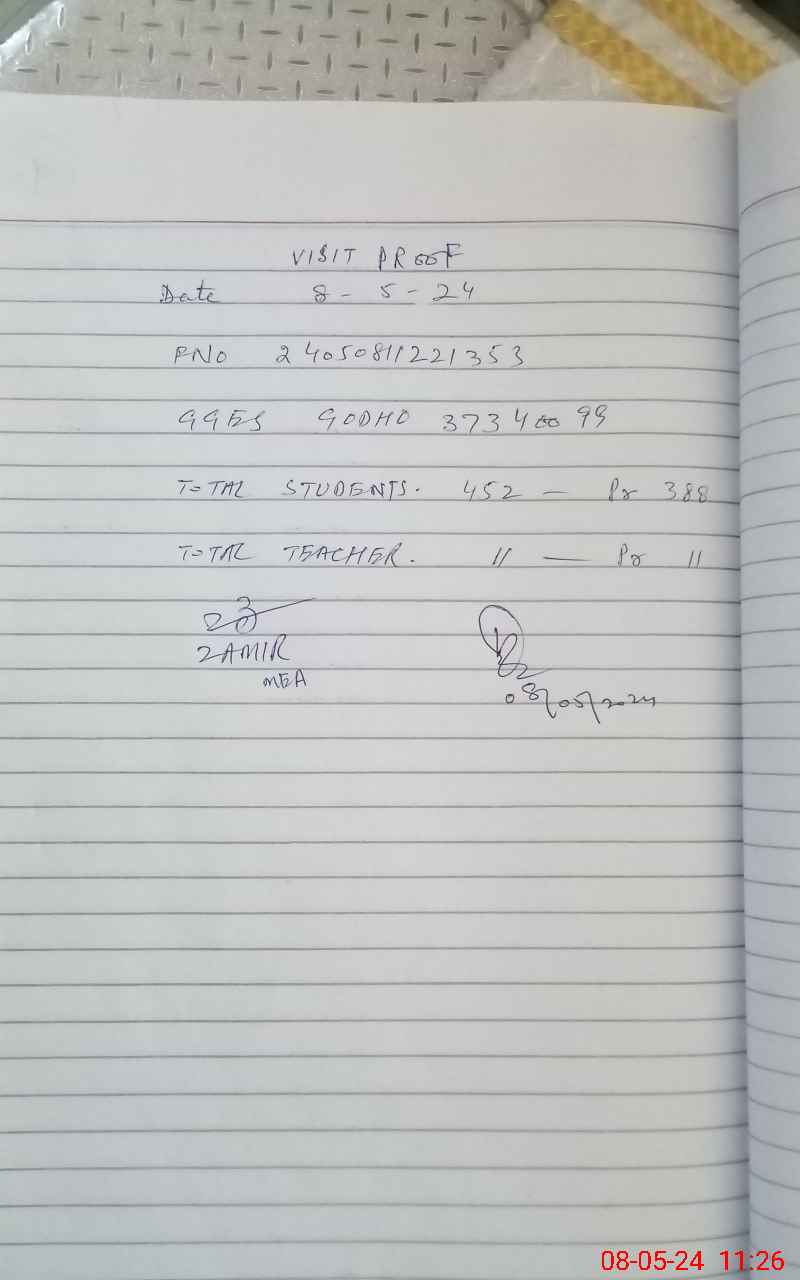 VISIT PROOF
Date 8 - 5 - 24
PNO 24050811221353
GGES GODHO 37340099
TOTAL STUDENTS. 452 — Pr 388
TOTAL TEACHER. 11 — Pr 11
ZAMIR
MEA
08/05/2024
08-05-24 11:26